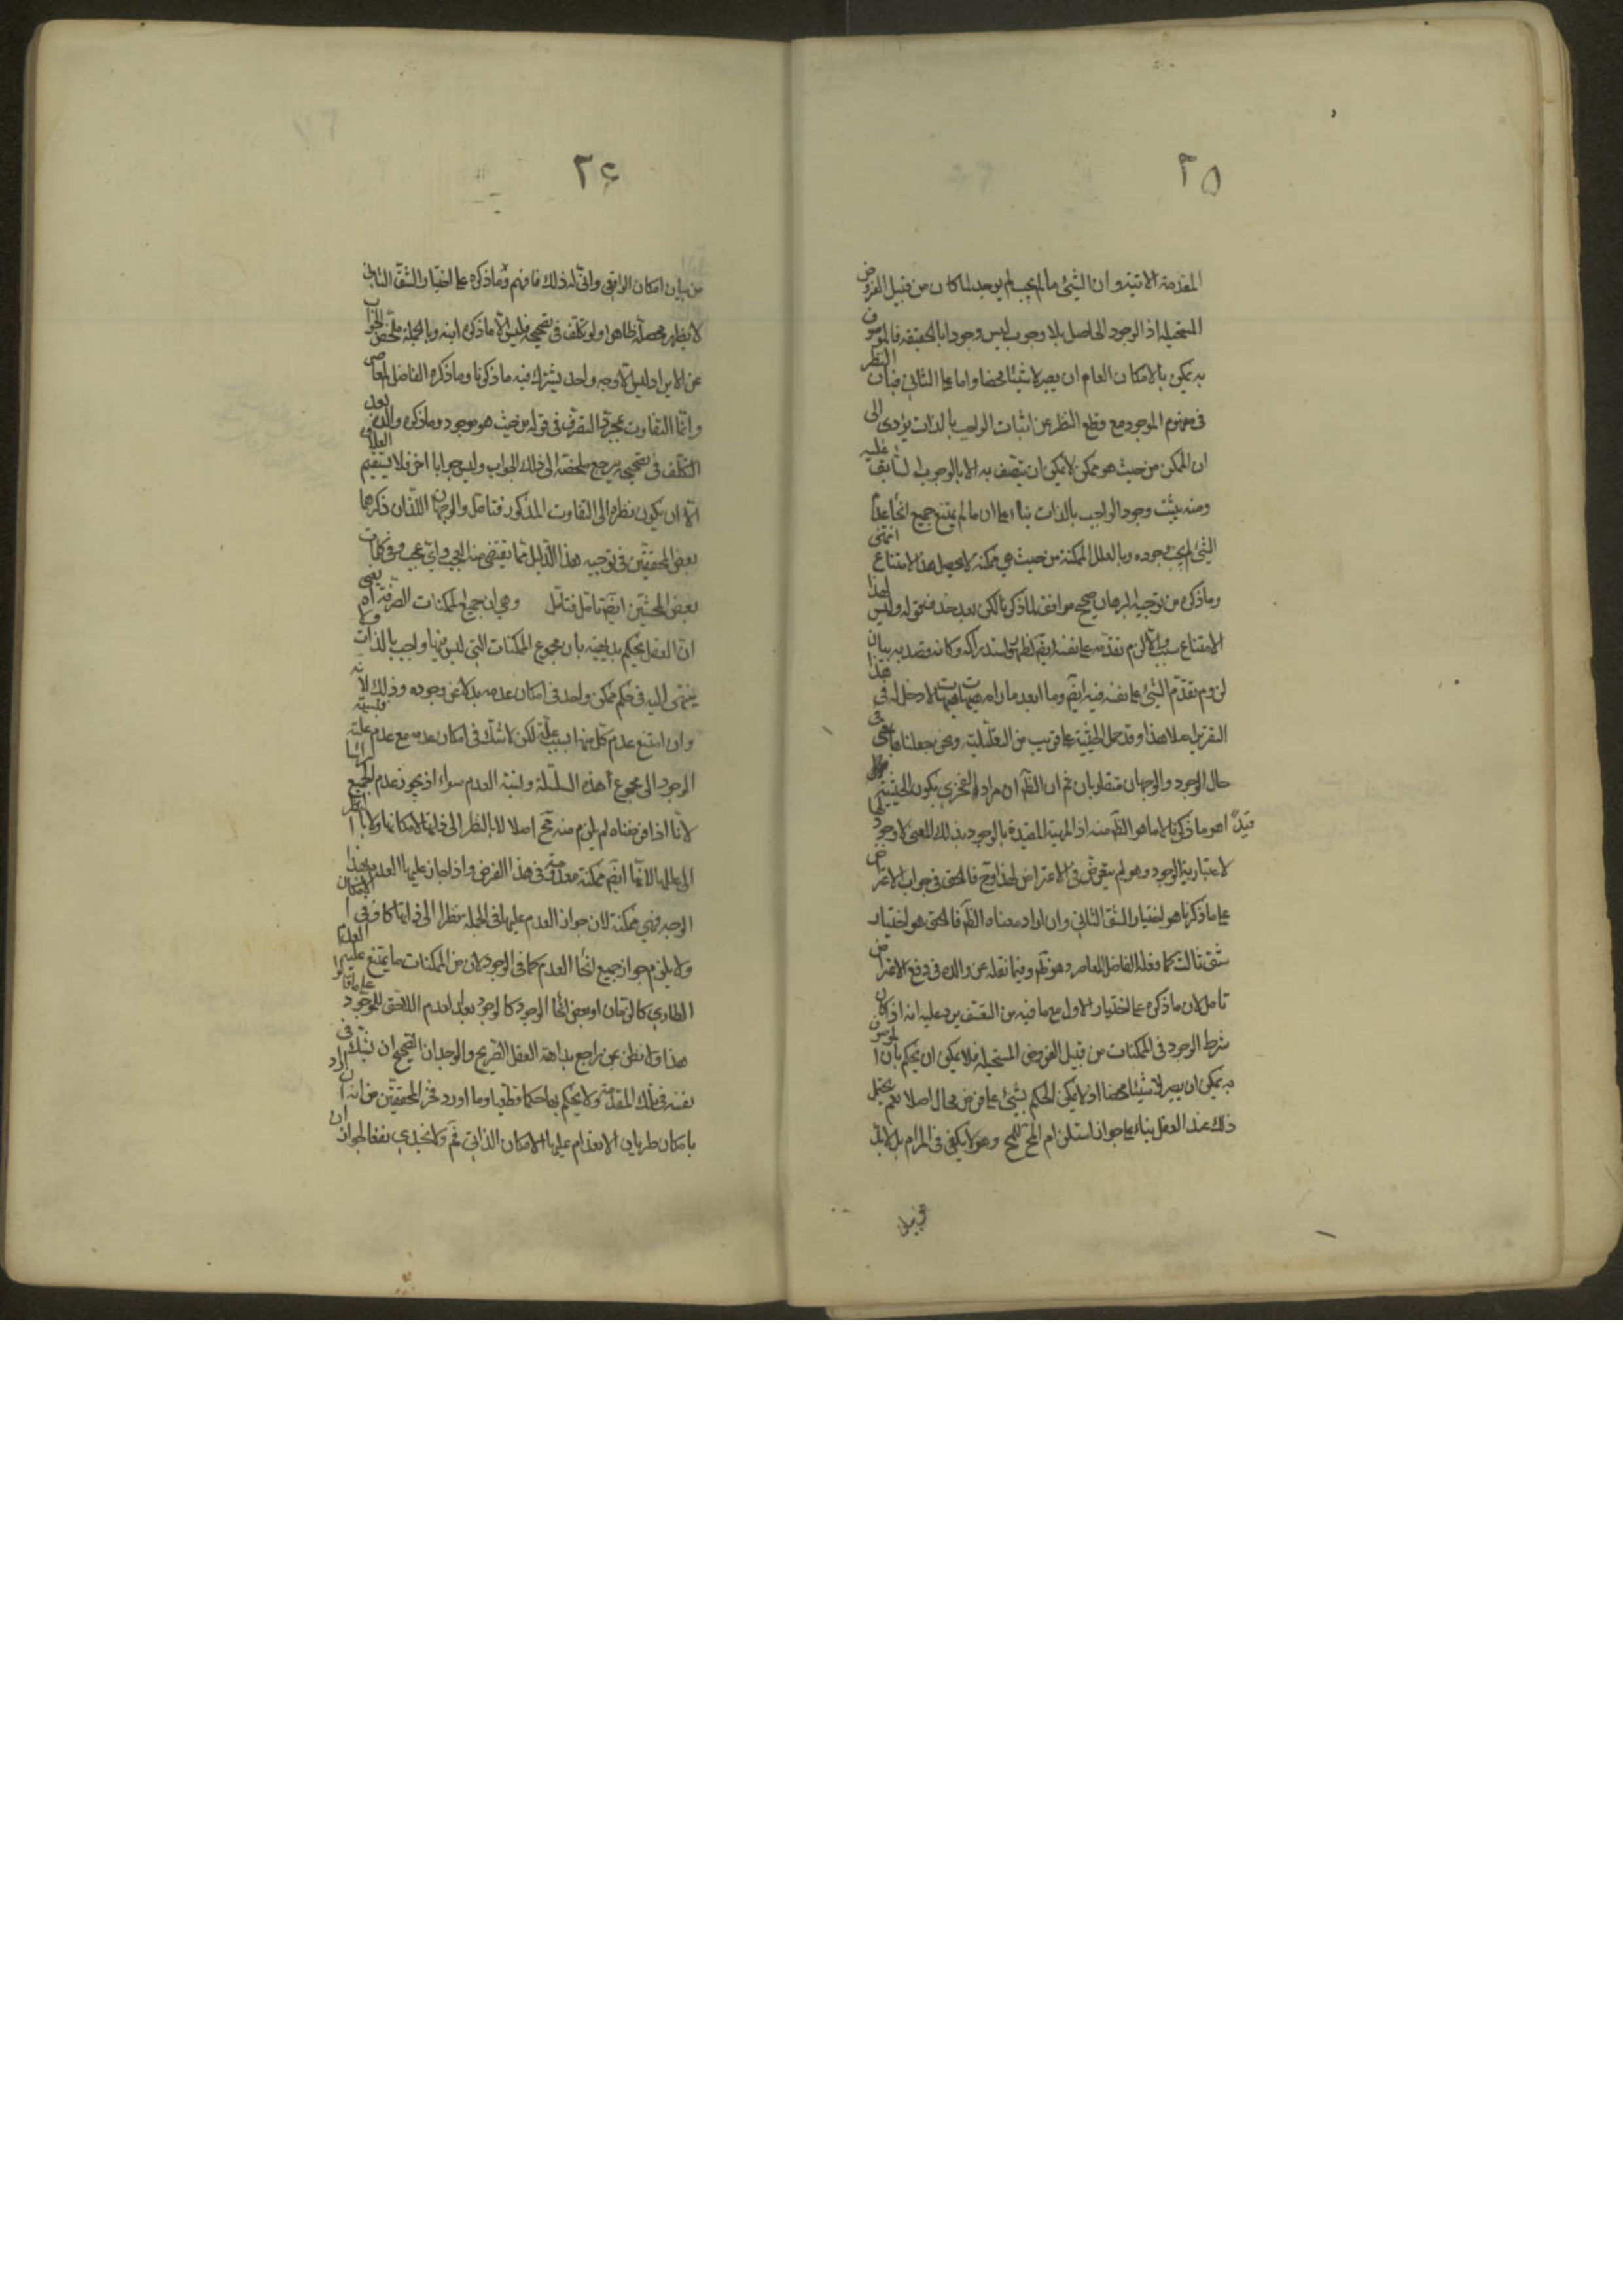 ٢٥
المقدمة الاتية وان الشئ ما لم يجب لم يوجد لما كان من قبيل الفروض
المستحيله اذ الوجود الحاصل بلا وجوب ليس وجودا بالحقيقه فالموصوف
به يمكن بالامكان العام ان يصير لا شيئا محضا واما على الثانى فبان النظر
فى مفهوم الموجود مع قطع النظر عن اثبات الواجب بالذات يؤدى الى
ان الممكن من حيث هو ممكن لا يمكن ان يتصف به الا بالوجوب السابق عليه
ومنه يثبت وجود الواجب بالذات بناء على ان ما لم يمتنع جميع انحاء عدم
الشئ لم يجب وجوده وبالعلل الممكنة من حيث هى ممكنة لا يحصل هذا الامتناع انتهى
وما ذكره من توجيه البرهان صحيح موافق لما ذكرنا لكن بعد حذف قوله وليس لهذا
الامتناع سبب والا لزم تقدمه على نفسه ايضا لظهور استدراكه وكانه قصد به بيان
لزوم تقدم الشئ على نفسه فيه ايضا وما ابعد ما رامه هيهات هيهات لا دخل له فى هذا
التقرير اصلا هذا وقد حمل الحيثية على قريب من التعليلية ونحن جعلناها فى
حال الوجود والوجهان متقاربان ثم ان الظ ان مراد الفخرى بكون الحيثية
قيدا هو ما ذكرنا لا ما هو الظ منه اذ المهية المقيدة بالوجود بذلك المعنى لا وجود لها
لاعتبارية الوجود وهو لم يتعرض فى الاعتراض لهذا وح فالحق فى جواب الاعتراض
على ما ذكرنا هو اختيار الشق الثانى وان اراد معناه الظ فالحق هو اختيار
شق ثالث كما فعله الفاضل المعاصر وهو تم وفيما نقله عن والده فى دفع الاعتراض
تامل لان ما ذكره على اختيار الاول مع ما فيه من التعسف يرد عليه انه اذ كان
شرط الوجود فى الممكنات من قبيل الفروض المستحيله فلا يمكن ان يحكم بان الموصوف
به يمكن ان يصير لا شيئا محضا اذ لا يمكن الحكم بشئ على فرض محال اصلا نعم يحتمل
ذلك عند العقل بناء على جواز استلزام المح للمح وهو لا يكفى فى المرام بل لابد
من بيان
٢۶
من بيان امكان الواقع وانى له ذلك فافهم وما ذكره على اختيار الشق الثانى
لا يظهر محصله ظاهرا ولو تكلف فى تصحيحه فليس الا ما ذكره ابنه وبالجملة ملخص الجواب
عن الايراد ليس الا وجه واحد يشترك فيه ما ذكرنا وما ذكره الفاضل المعاصر
وانما التفاوت بمجرد التصرف فى قوله من حيث هو موجود وما ذكره والده بعد
التكلف فى تصحيحه يرجع ملخصه الى ذلك الجواب وليس جوابا اخر فلا يستقيم العلاوة
الا ان يكون نظره الى التفاوت المذكور فتامل والوجهان اللذان ذكرهما
بعض المحققين فى توجيه هذا الدليل مما يقتضى منه العجب واى عجب وفى كلمات
بعض المحشين ايضا تامل فتامل وهى ان جميع الممكنات الصرفة اه يعنى
ان العقل يحكم بداهية بان مجموع الممكنات التى ليس فيها واجب بالذات ولا
ينتهى اليه فى حكم ممكن واحد فى امكان عدمه بدلا عن وجوده وذلك لانه
وان امتنع عدم كل منها بسبب علة لكن لا شك فى امكان عدمه مع عدم علته فنسبة
الوجود الى مجموع هذه السلسلة ونسبة العدم سواء اذ يجوز عدم الجميع
لانا اذا فرضناه لم يلزم منه مح اصلا لا بالنظر الى ذواتها لامكانها ولا بالنظر
الى عللها لانها ايضا ممكنة معدومة فى هذا الفرض واذا جاز عليها العدم بهذا
الوجه فهى ممكنة لان جواز العدم عليها فى الجملة نظرا الى ذواتها كاف فى الامكان
ولا يلزم جواز جميع انحاء العدم كما فى الوجود لان من الممكنات ما يمتنع عليه العدم
الطارى كالزمان او بعض انحاء الوجود كالوجود بعد العدم اللاحق للموجود على ما قالوا
هذا ولا نظن بمن راجع بداهة العقل الصريح والوجدان الصحيح ان يشك فى
نفسه فى تلك المقدمة ولا يحكم بها حكما قطعيا وما اورد فخر المحققين من انه ان اراد
بامكان طريان الانعدام عليها الامكان الذاتى فم ولا يجدى نفعا لجواز ان